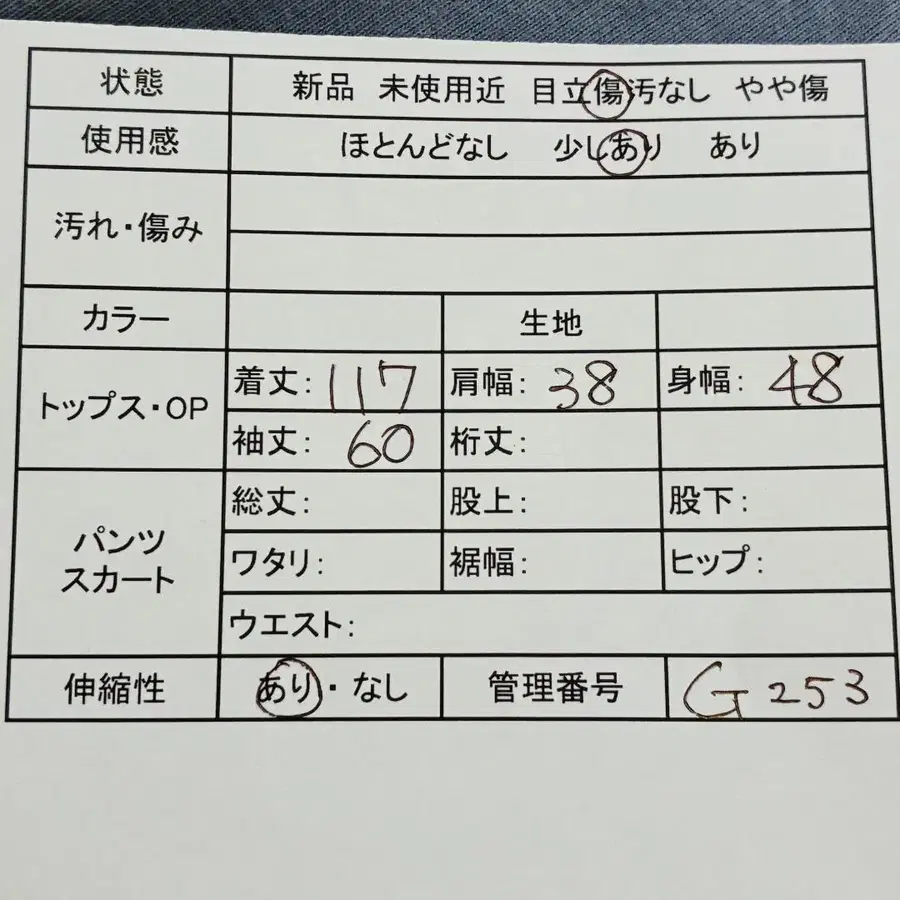 状態 新品 未使用近 目立傷汚なし やや傷
使用感 ほとんどなし 少しあり あり
汚れ・傷み
カラー 生地
トップス・OP
着丈: 117 肩幅: 38 身幅: 48
袖丈: 60 裄丈:
パンツ
スカート
総丈: 股上: 股下:
ワタリ: 裾幅: ヒップ:
ウエスト:
伸縮性 あり・なし 管理番号 G253